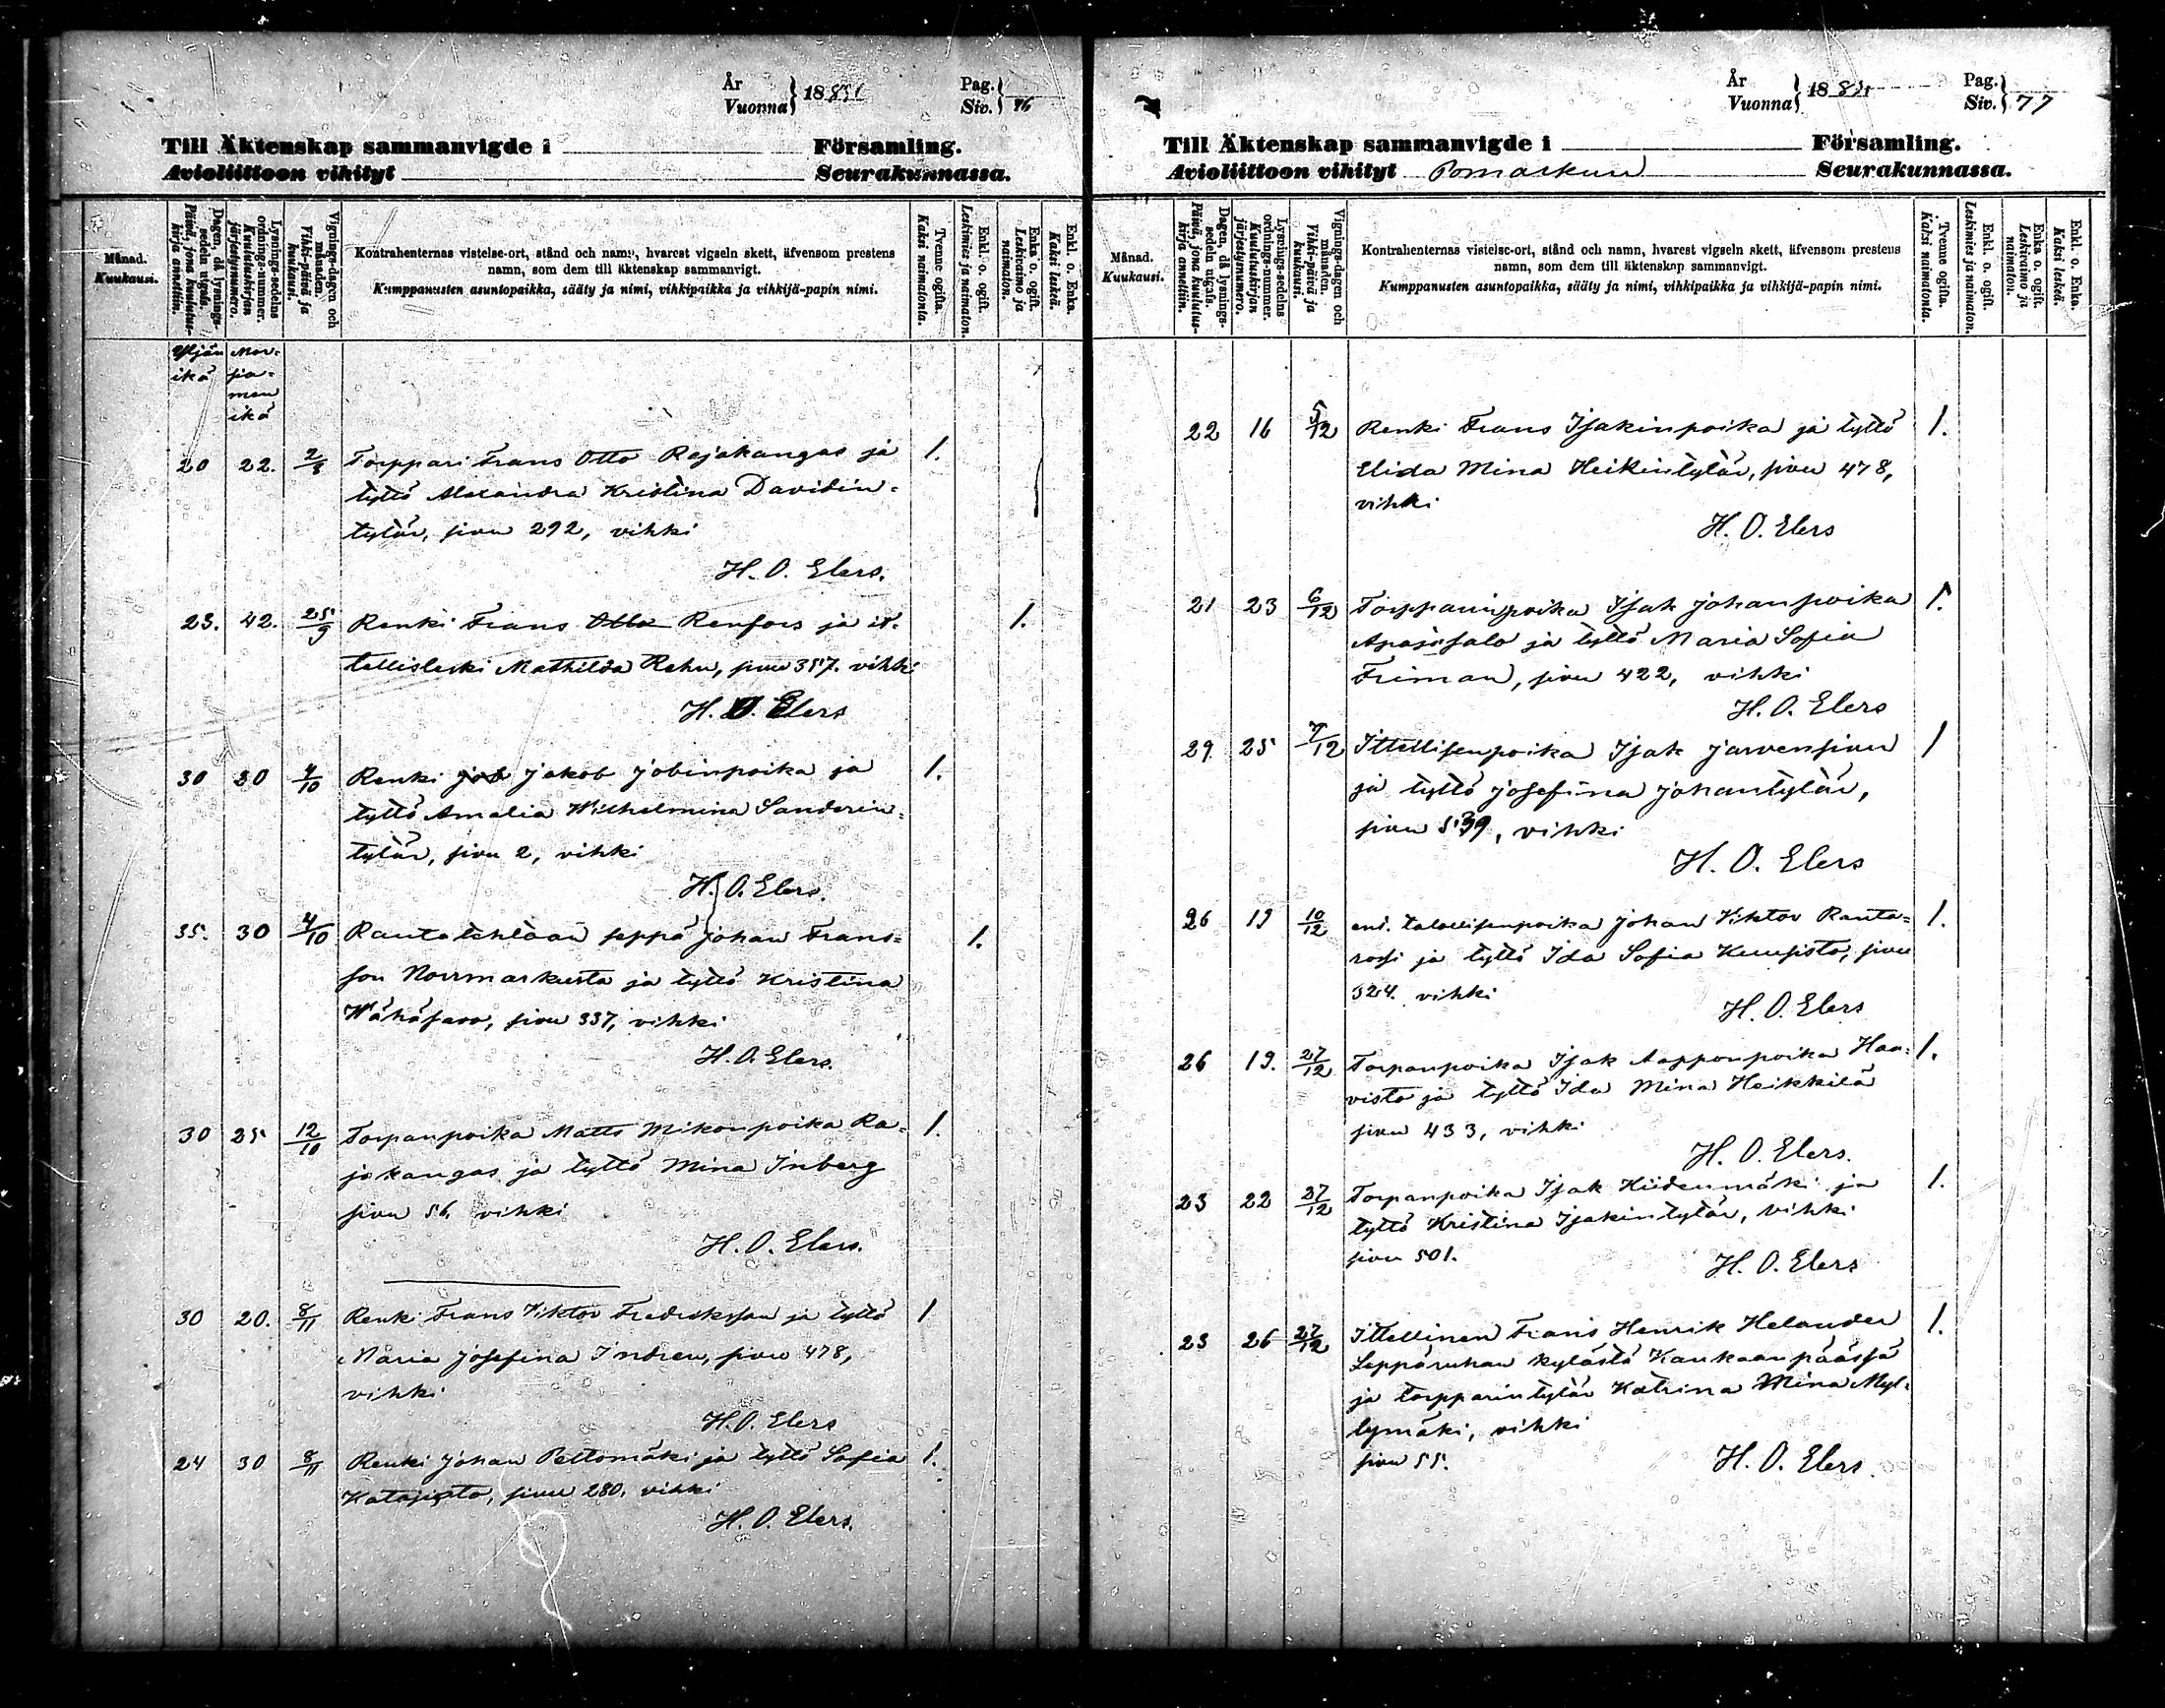 År
Vuonna } 1881
Pag.
Siv. } 76
Till Äktenskap sammanvigde i Församling.
Avioliittoon vihityt Seurakunnassa.
Månad.
Kuukausi.
Dagen, då lysnings-sedeln utgafs.
Päivä, jona kuulutus-kirja annettiin.
Lysnings-sedelns ordnings-nummer.
Kuulutuskirjan järjestysnumero.
Vignings-dagen och månaden.
Vihki-päivä ja kuukausi.
Kontrahenternas vistelse-ort, stånd och namn, hvarest vigseln skett, äfvensom prestens
namn, som dem till äktenskap sammanvigt.
Kumppanusten asuntopaikka, sääty ja nimi, vihkipaikka ja vihkijä-papin nimi.
Tvenne ogifta.
Kaksi naimatonta.
Enkl. o. ogift.
Leskimies ja naimaton.
Enka o. ogift.
Leskivaimo ja naimaton.
Enkl. o. Enka.
Kaksi leskeä.
Yljän ikä
Morsiamen ikä
20 22. 2/3 Torppari Frans Otto Rajakangas ja 1.
tyttö Alexandra Kristina Davidin-
tytär, sivu 292, vihki
H. O. Elers.
23. 42. 25/9 Renki Frans Otto Renfors ja it- 1.
tellisleski Mathilda Rehu, sivu 357. vihki
H. O. Elers
30 30 4/10 Renki Job Jakob Jobinpoika ja 1.
tyttö Amalia Wilhelmina Sanderin-
tytär, sivu 2, vihki
H. O. Elers.
35. 30 4/10 Rautatehtaan seppä Johan Frans- 1.
son Norrmarkusta ja tyttö Kristina
Wähäsavo, sivu 337, vihki
H. O. Elers.
30 25 12/10 Torpanpoika Matts Mikonpoika Ra- 1.
jakangas ja tyttö Mina Inberg
sivu 56. vihki
H. O. Elers.
30 20. 8/11 Renki Frans Viktor Fredriksson ja tyttö 1
Maria Josefina Indren, sivu 478,
vihki
H. O. Elers
24 30 8/11 Renki Johan Peltomäki ja tyttö Sofia 1.
Katajisto, sivu 280. vihki
H. O. Elers.
År
Vuonna } 1881
Pag.
Siv. } 77
Till Äktenskap sammanvigde i Församling.
Avioliittoon vihityt Pomarkun Seurakunnassa.
Månad.
Kuukausi.
Dagen, då lysnings-sedeln utgafs.
Päivä, jona kuulutus-kirja annettiin.
Lysnings-sedelns ordnings-nummer.
Kuulutuskirjan järjestysnumero.
Vignings-dagen och månaden.
Vihki-päivä ja kuukausi.
Kontrahenternas vistelse-ort, stånd och namn, hvarest vigseln skett, äfvensom prestens
namn, som dem till äktenskap sammanvigt.
Kumppanusten asuntopaikka, sääty ja nimi, vihkipaikka ja vihkijä-papin nimi.
Tvenne ogifta.
Kaksi naimatonta.
Enkl. o. ogift.
Leskimies ja naimaton.
Enka o. ogift.
Leskivaimo ja naimaton.
Enkl. o. Enka.
Kaksi leskeä.
22 16 5/12 Renki Frans Isakinpoika ja tyttö 1.
Elida Mina Heikintytär, sivu 478,
vihki
H. O. Elers
21 23 6/12 Torpparinpoika Isak Johanpoika 1.
Apajasalo ja tyttö Maria Sofia
Friman, sivu 422, vihki
H. O. Elers
29 25 7/12 Ittellisenpoika Isak Jarvensivu 1
ja tyttö Josefina Johantytär,
sivu 539, vihki
H. O. Elers
26 19 10/12 ent. talollisenpoika Johan Viktor Ranta- 1.
rossi ja tyttö Ida Sofia Kuusisto, sivu
324. vihki
H. O. Elers
26 19. 27/12 Torpanpoika Isak Aapponpoika Haa- 1.
visto ja tyttö Ida Mina Heikkilä
sivu 433, vihki
H. O. Elers.
23 22 27/12 Torpanpoika Isak Hiidenmäki ja 1.
tyttö Kristina Isakintytär, vihki
sivu 501.
H. O. Elers
23 26 27/12 Ittellinen Frans Henrik Helander 1.
Leppäruhan kylästä Kankaanpäässä
ja torpparintytär Katrina Mina Myl-
lymäki, vihki
sivu 55.
H. O. Elers.